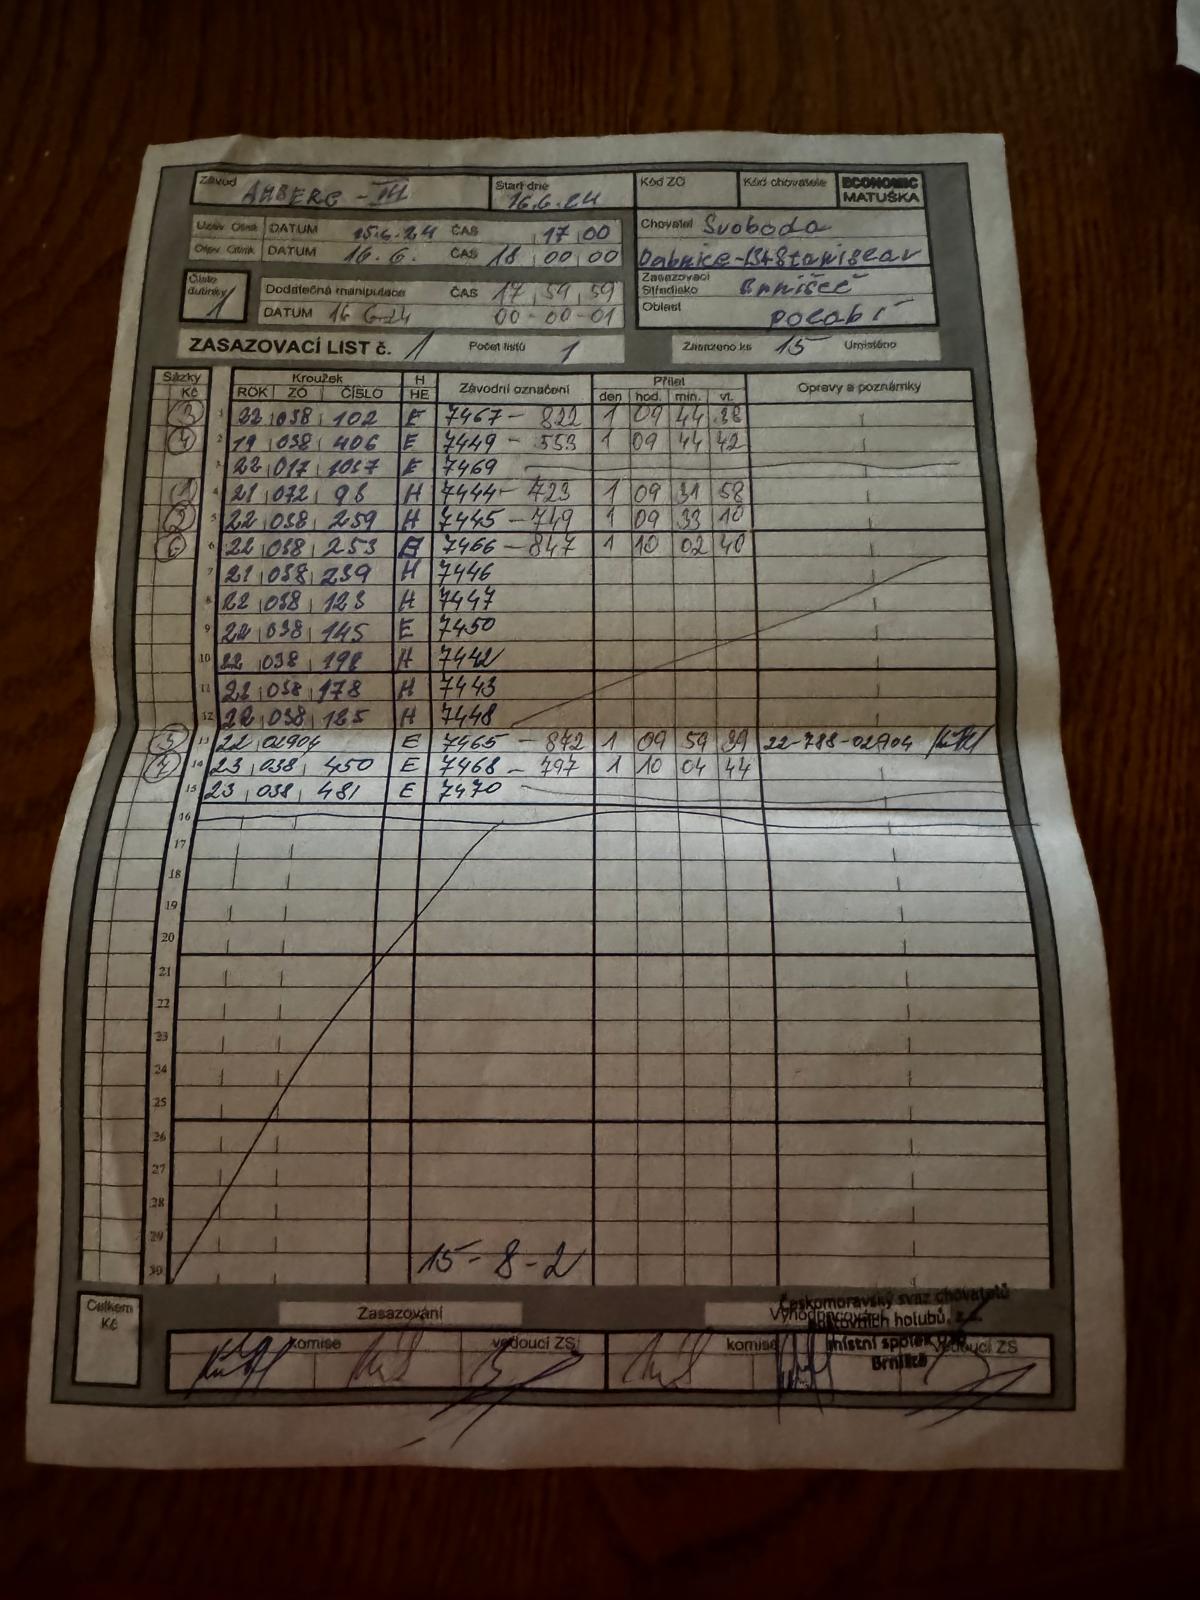 Závod AMBERG - III Start dne 16.6.24 Kód ZO Kód chovatele ECONOMIC MATUŠKA
Uzáv. Čítník DATUM 15.6.24 ČAS 17 00
Chovatel Svoboda
DATUM 16.6. ČAS 18 00 00
Stanislav
Číslo dutinky 1
Dodatečná manipulace ČAS 17 59 59
Zasazovací Středisko Brníště
DATUM 16 6 24 00-00-01
Oblast polabí
ZASAZOVACÍ LIST č. 1 Počet listů 1 Zasazeno ks 15 Umístěno
Sázky Kč Kroužek H Závodní označení Přílet Opravy a poznámky
ROK ZO ČÍSLO HE den hod. min. vt.
3 1 22 038 102 E 7467 - 822 1 09 44 38
4 2 19 038 406 E 7449 - 553 1 09 44 42
3 22 017 1037 E 7469
1 4 21 072 98 H 7444 - 723 1 09 31 58
2 5 22 038 259 H 7445 - 749 1 09 33 10
6 6 22 038 253 E 7466 - 847 1 10 02 40
7 21 038 239 H 7446
8 22 038 123 H 7447
9 22 038 145 E 7450
10 22 038 198 H 7442
11 22 038 178 H 7443
12 22 038 125 H 7448
5 13 22 02904 E 7465 - 872 1 09 59 39 22-788-02904
7 14 23 038 450 E 7468 - 797 1 10 04 44
15 23 038 481 E 7470
16
17
18
19
20
21
22
23
24
25
26
27
28
29
30
15 - 8 - 2
Celkem Kč
Zasazování
Českomoravský svaz chovatelů
poštovních holubů, z.s.
komise vedoucí ZS komise vedoucí ZS
místní spolek
Brníště